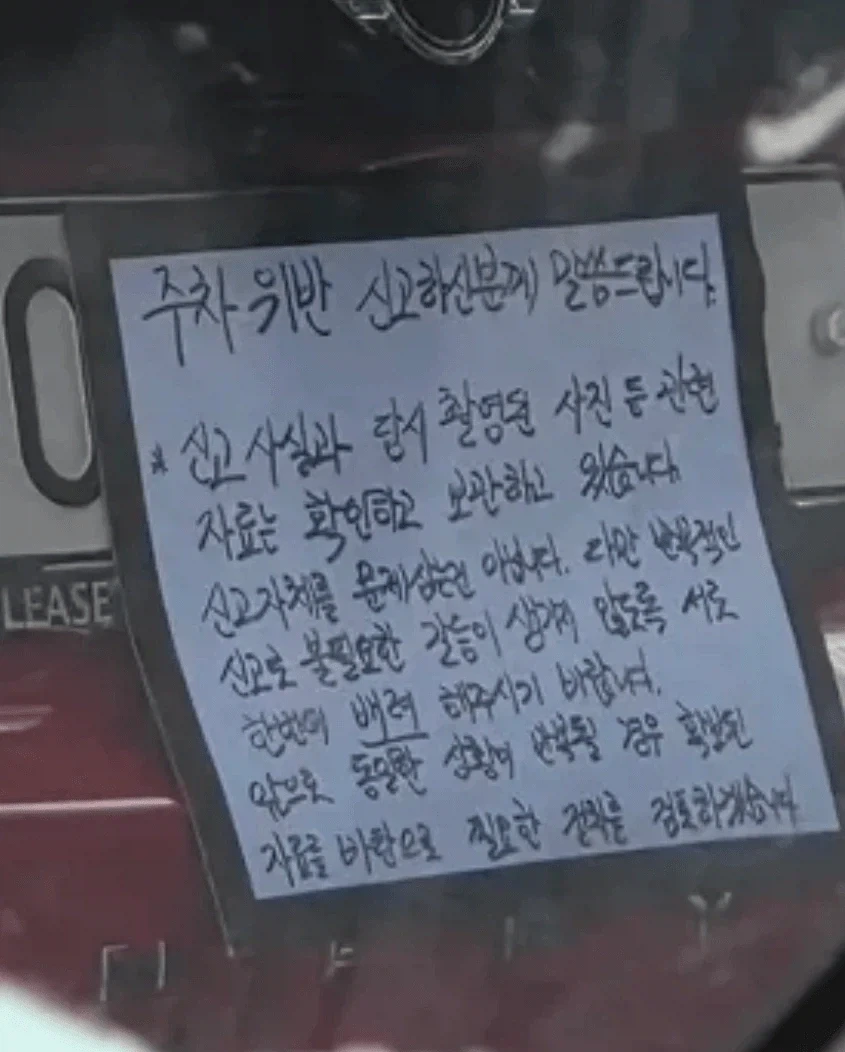 주차위반 신고하신분께 말씀드립니다.
* 신고 사실과 당시 촬영된 사진 등 관련
자료는 확인하고 보관하고 있습니다.
신고자체를 문제삼는건 아닙니다. 다만 반복적인
신고로 불필요한 갈등이 생기지 않도록 서로
한번의 배려 해주시기 바랍니다.
앞으로 동일한 상황이 반복될 경우 확보된
자료를 바탕으로 필요한 절차를 검토하겠습니다
0
LEASE